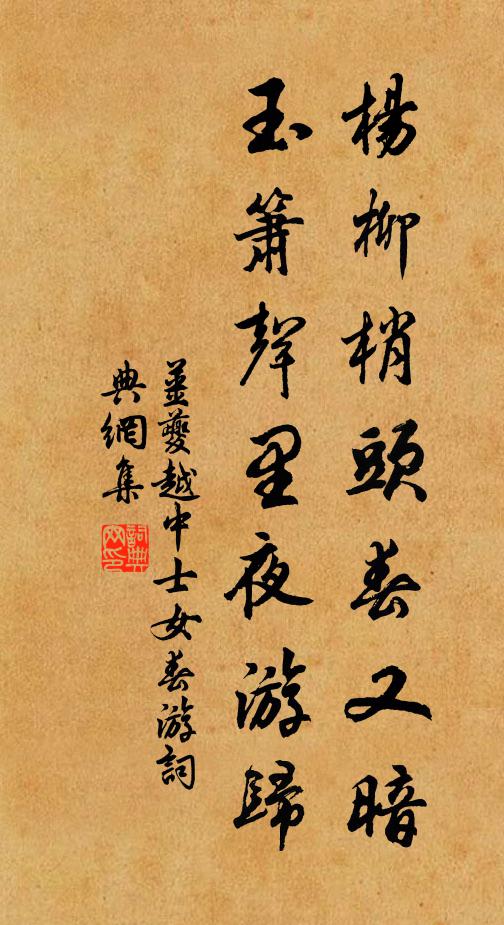 楊柳梢頭春又暗
玉簫聲里夜游歸
姜夔越中士女春游詞
典網集
詞典
网印